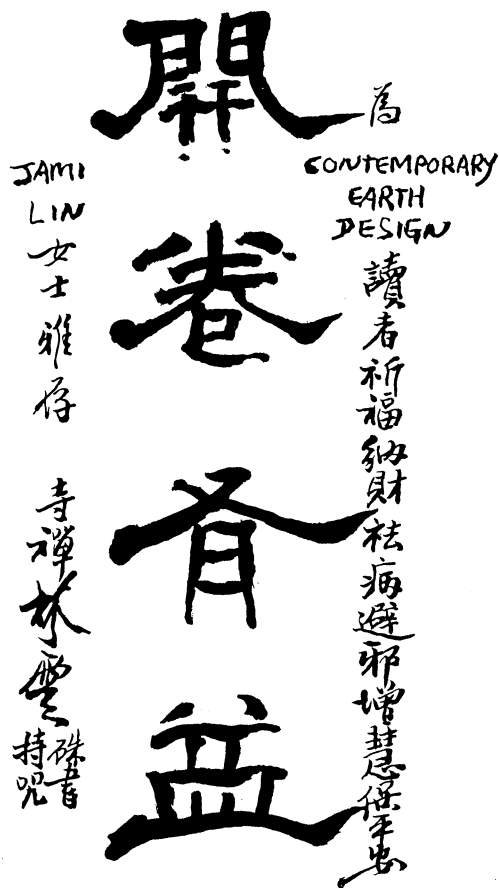 為
CONTEMPORARY
EARTH
DESIGN
讀者祈福納財祛病避邪增慧保平安
開卷有益
JAMI
LIN
女士雅存
寺禪林雲
硃書
持咒